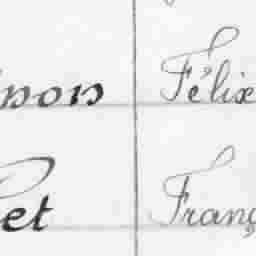 non Félix
et Franç